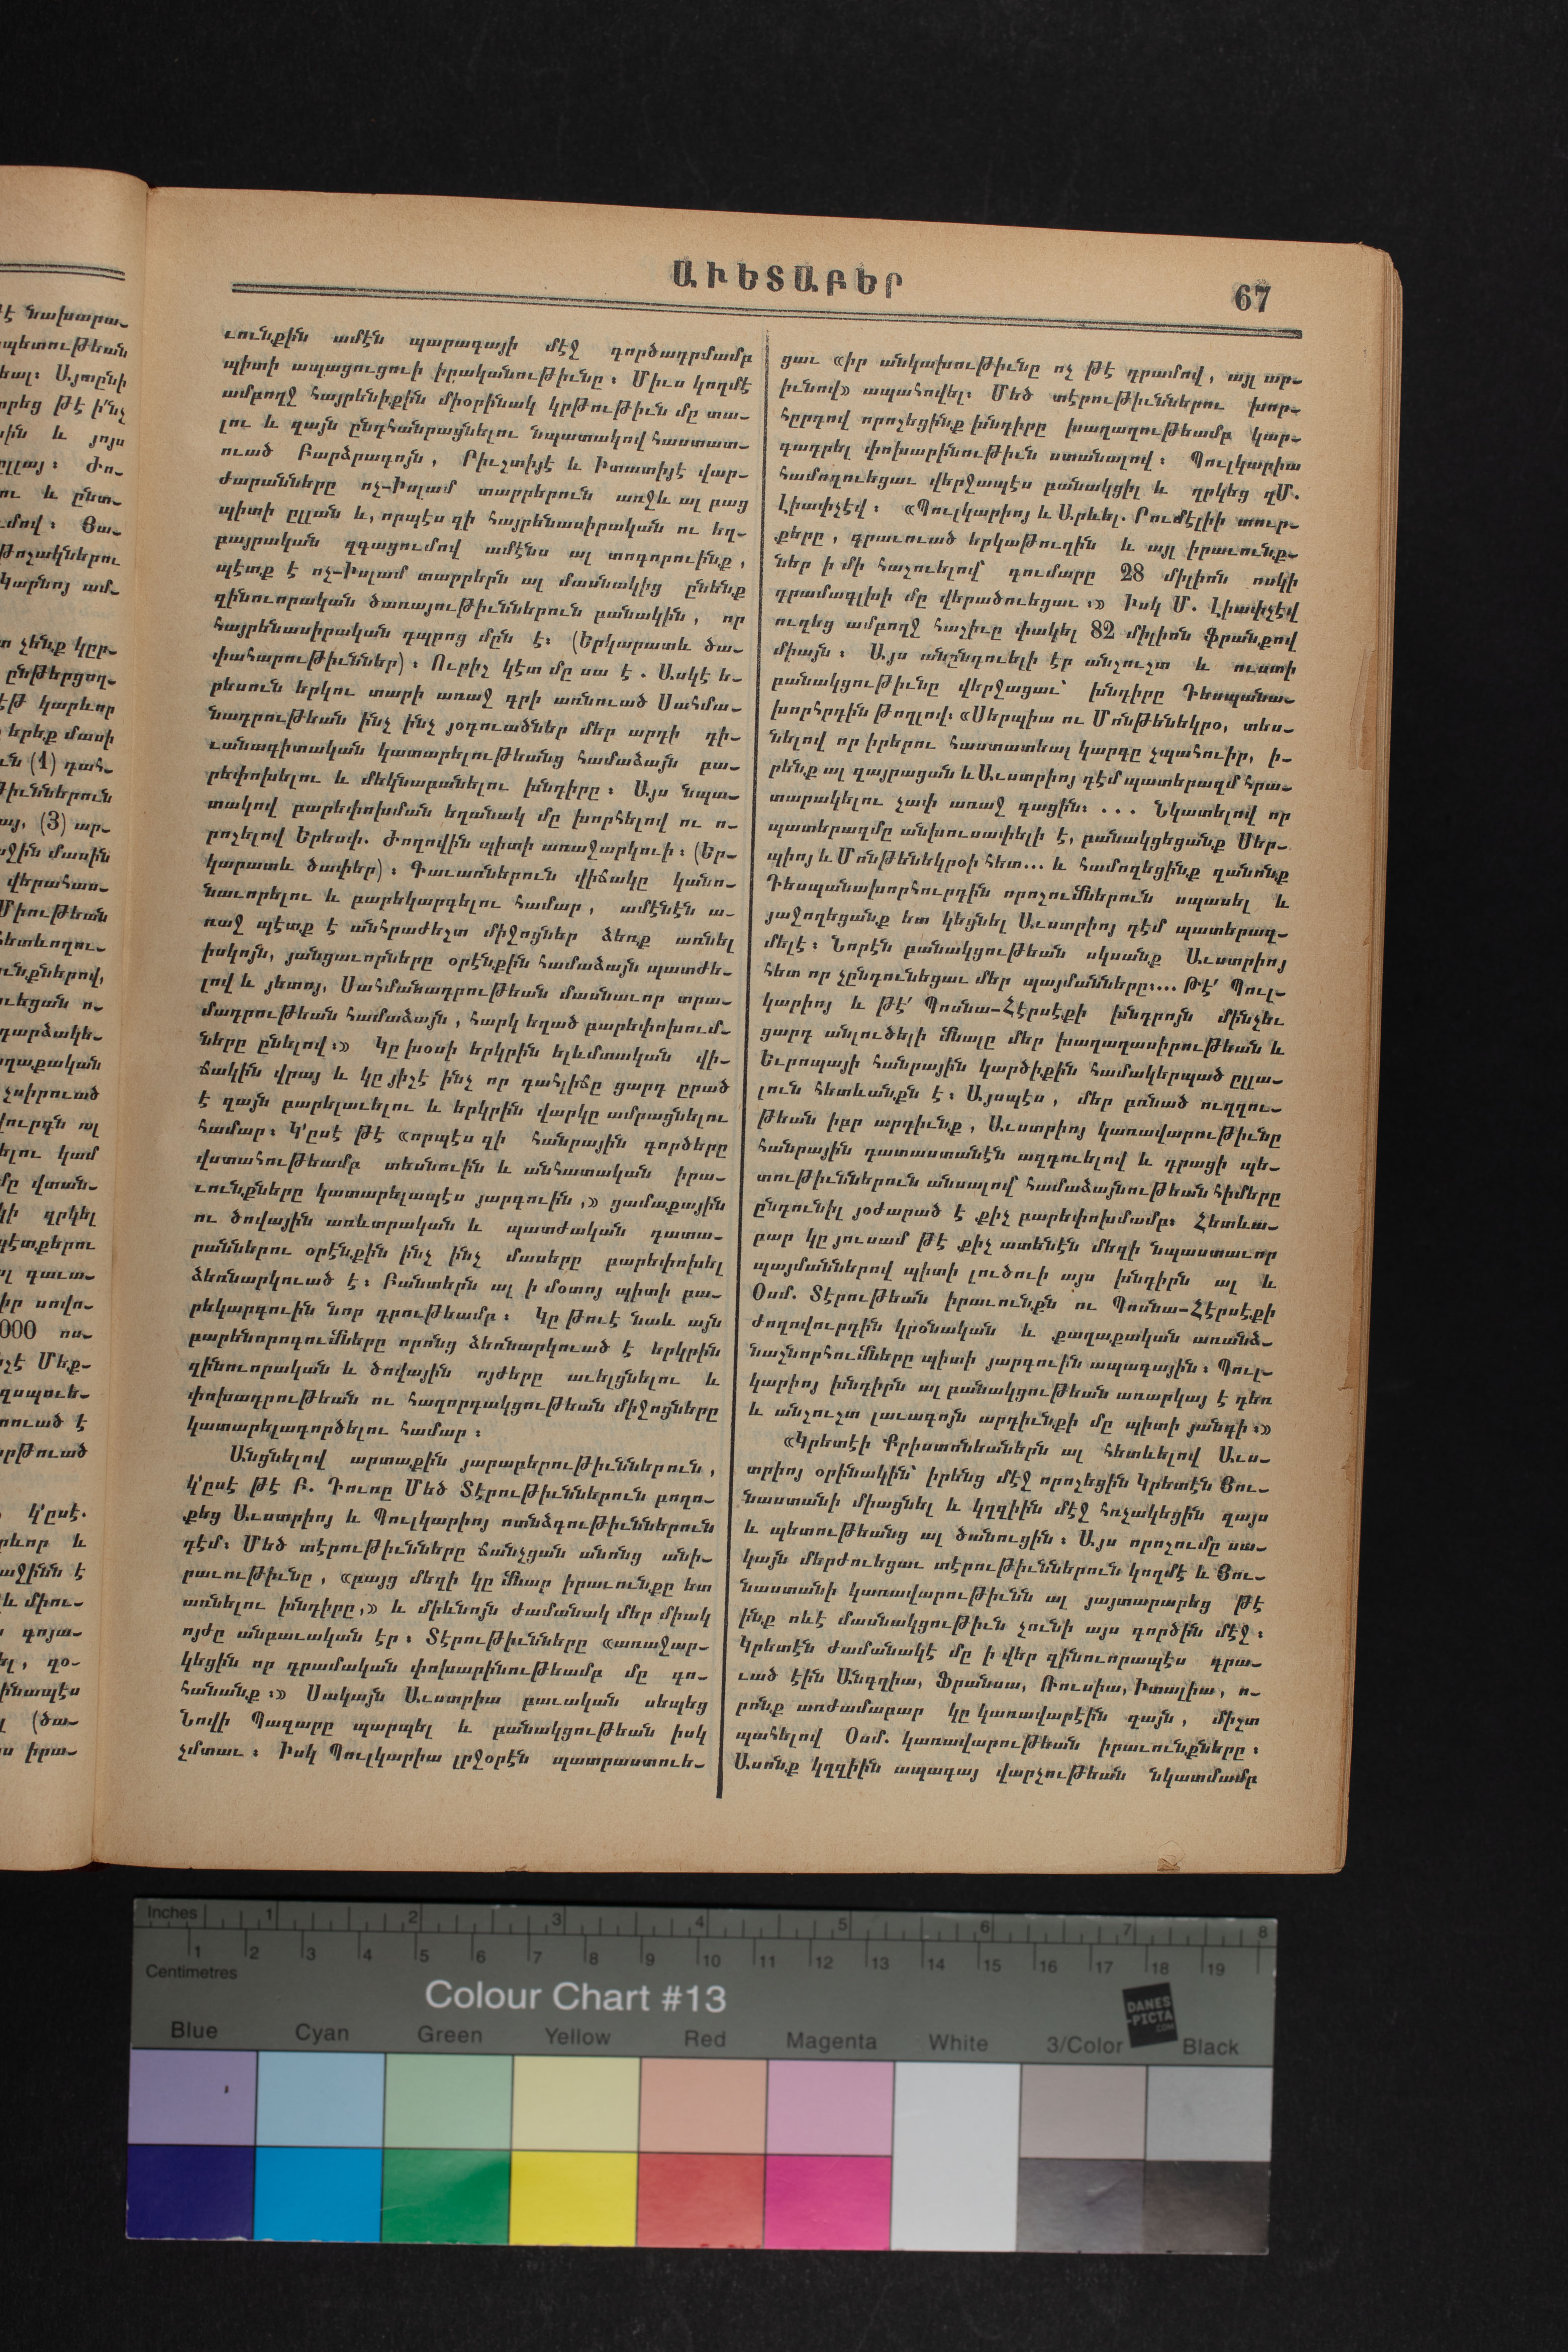 ԱՒԵՏԱԲԵՐ
67
ւունքին ամէն պարագայի մէջ գործադրմամբ
պիտի ապացուցուի իրականութիւնը։ Միւս կողմէ
ամբողջ հայրենիքին միօրինակ կրթութիւն մը տա-
լու և զայն ընդհանրացնելու նպատակով հաստատ-
ուած Բարձրագոյն, Րիւշտիյէ և Իտատիյէ վար-
ժարանները ոչ-Իսլամ տարրերուն առջև ալ բաց
պիտի ըլլան և, որպէս զի հայրենասիրական ու եղ-
բայրական զգացումով ամէնս ալ տոգորուինք,
պէտք է ոչ-Իսլամ տարրերն ալ մասնակից ընենք
զինուորական ծառայութիւններուն բանակին, որ
հայրենասիրական դպրոց մըն է։ (Երկարատև ծա-
փահարութիւններ)։ Ուրիչ կէտ մը սա է. Ասկէ ե-
րեսուն երկու տարի առաջ դրի առնուած Սահմա-
նադրութեան ինչ ինչ յօդուածներ մեր արդի դի-
ւանագիտական կատարելութեանց համաձայն բա-
րեփոխելու և մեկնաբանելու խնդիրը։ Այս նպա-
տակով բարեփոխման եղանակ մը խորհելով ու ո-
րոշելով Երեսփ. Ժողովին պիտի առաջարկուի։ (Եր-
կարատև ծափեր)։ Գաւառներուն վիճակը կանո-
նաւորելու և բարեկարգելու համար, ամէնէն ա-
ռաջ պէտք է անհրաժեշտ միջոցներ ձեռք առնել
իսկոյն, յանցաւորները օրէնքին համաձայն պատժե-
լով և յետոյ, Սահմանադրութեան մասնաւոր տրա-
մադրութեան համաձայն, հարկ եղած բարեփոխում-
ները ընելով։» Կը խօսի երկրին ելեւմտական վի-
ճակին վրայ և կը յիշէ ինչ որ դահլիճը ցարդ ըրած
է զայն բարելաւելու և երկրին վարկը ամրացնելու
համար։ Կ՚ըսէ թէ «որպէս զի հանրային գործերը
վստահութեամբ տեսնուին և անհատական իրա-
ւունքները կատարելապէս յարգուին,» ցամաքային
ու ծովային առևտրական և պատժական դատա-
րաններու օրէնքին ինչ ինչ մասերը բարեփոխել
ձեռնարկուած է։ Բանտերն ալ ի մօտոյ պիտի բա-
րեկարգուին նոր դրութեամբ։ Կը թուէ նաև այն
բարենորոգումները որոնց ձեռնարկուած է երկրին
զինուորական և ծովային ոյժերը աւելցնելու և
փոխադրութեան ու հաղորդակցութեան միջոցները
կատարելագործելու համար։
Անցնելով արտաքին յարաբերութիւններուն,
կ՚ըսէ թէ Բ. Դուռը Մեծ Տէրութիւններուն բողո-
քեց Աւստրիոյ և Պուլկարիոյ ոտնձգութիւններուն
դէմ։ Մեծ տէրութիւնները ճանչցան անոնց անի-
րաւութիւնը, «բայց մեզի կը մնար իրաւունքը ետ
առնելու խնդիրը,» և միևնոյն ժամանակ մեր միակ
ոյժը անբաւական էր։ Տէրութիւնները «առաջար-
կեցին որ դրամական փոխարինութեամբ մը գո-
հանանք։» Սակայն Աւստրիա բաւական սեպեց
Նովի Պազարը պարպել և բանակցութեան իսկ
չմտաւ։ Իսկ Պուլկարիա լրջօրէն պատրաստուե-
ցաւ «իր անկախութիւնը ոչ թէ դրամով, այլ ար-
իւնով» ապահովել։ Մեծ տէրութիւններու խոր-
հըրդով որոշեցինք խնդիրը խաղաղութեամբ կար-
գադրել փոխարինութիւն ստանալով։ Պուլկարիա
համոզուեցաւ վերջապէս բանակցիլ և ղրկեց զՄ.
Լիափչէվ։ «Պուլկարիոյ և Արևել. Րումէլիի տուր-
քերը, գրաւուած երկաթուղին և այլ իրաւունք-
ներ ի մի հաշուելով՝ գումարը 28 միլիոն ոսկի
դրամագլխի մը վերածուեցաւ։» Իսկ Մ. Լիափչէվ
ուզեց ամբողջ հաշիւը փակել 82 միլիոն ֆրանքով
միայն։ Այս անընդունելի էր անշուշտ և ուստի
բանակցութիւնը վերջացաւ՝ խնդիրը Դեսպանա-
խորհրդին թողլով։ «Սերպիա ու Մոնթենեկրօ, տես-
նելով որ իրերու հաստատեալ կարգը չպահուիր, ի-
րենք ալ զայրացան և Աւստրիոյ դէմ պատերազմ հրա-
տարակելու չափ առաջ գացին։ ... Նկատելով որ
պատերազմը անխուսափելի է, բանակցեցանք Սեր-
պիոյ և Մոնթենեկրօի հետ... և համոզեցինք զանոնք
Դեսպանախորհուրդին որոշումներուն սպասել և
յաջողեցանք ետ կեցնել Աւստրիոյ դէմ պատերազ-
մելէ։ Նորէն բանակցութեան սկսանք Աւստրիոյ
հետ որ չընդունեցաւ մեր պայմանները։... Թէ՛ Պուլ-
կարիոյ և թէ՛ Պոսնա-Հէրսէքի խնդրոյն մինչեւ
ցարդ անլուծելի մնալը մեր խաղաղասիրութեան և
Եւրոպայի հանրային կարծիքին համակերպած ըլլա-
լուն հետևանքն է։ Այսպէս, մեր բռնած ուղղու-
թեան իբր արդիւնք, Աւստրիոյ կառավարութիւնը
հանրային դատաստանէն ազդուելով և դրացի պե-
տութիւններուն անսալով համաձայնութեան հիմերը
ընդունիլ յօժարած է քիչ բարեփոխմամբ։ Հետևա-
բար կը յուսամ թէ քիչ ատենէն մեզի նպաստաւոր
պայմաններով պիտի լուծուի այս խնդիրն ալ և
Օսմ. Տէրութեան իրաւունքն ու Պոսնա-Հէրսէքի
ժողովուրդին կրօնական և քաղաքական առանձ-
նաշնորհումները պիտի յարգուին ապագային։ Պուլ-
կարիոյ խնդիրն ալ բանակցութեան առարկայ է դեռ
և անշուշտ լաւագոյն արդիւնքի մը պիտի յանգի։»
«Կրետէի Քրիստոնեաներն ալ հետևելով Աւս-
տրիոյ օրինակին՝ իրենց մէջ որոշեցին Կրետէն Յու-
նաստանի միացնել և կղզիին մէջ հռչակեցին զայս
և պետութեանց ալ ծանուցին։ Այս որոշումը սա-
կայն մերժուեցաւ տէրութիւններուն կողմէ և Յու-
նաստանի կառավարութիւնն ալ յայտարարեց թէ
ինք ոևէ մասնակցութիւն չունի այս գործին մէջ։
Կրետէն ժամանակէ մը ի վեր զինուորապէս գրա-
ւած էին Անգղիա, Ֆրանսա, Ռուսիա, Իտալիա, ո-
րոնք առժամաբար կը կառավարէին զայն, միշտ
պահելով Օսմ. կառավարութեան իրաւունքները։
Ասոնք կղզիին ապագայ վարչութեան նկատմամբ
Inches 1 2 3 4 5 6 7 8
1 2 3 4 5 6 7 8 9 10 11 12 13 14 15 16 17 18 19
Centimetres
Colour Chart #13
DANES
-PICTA
.COM
Blue Cyan Green Yellow Red Magenta White 3/Color Black